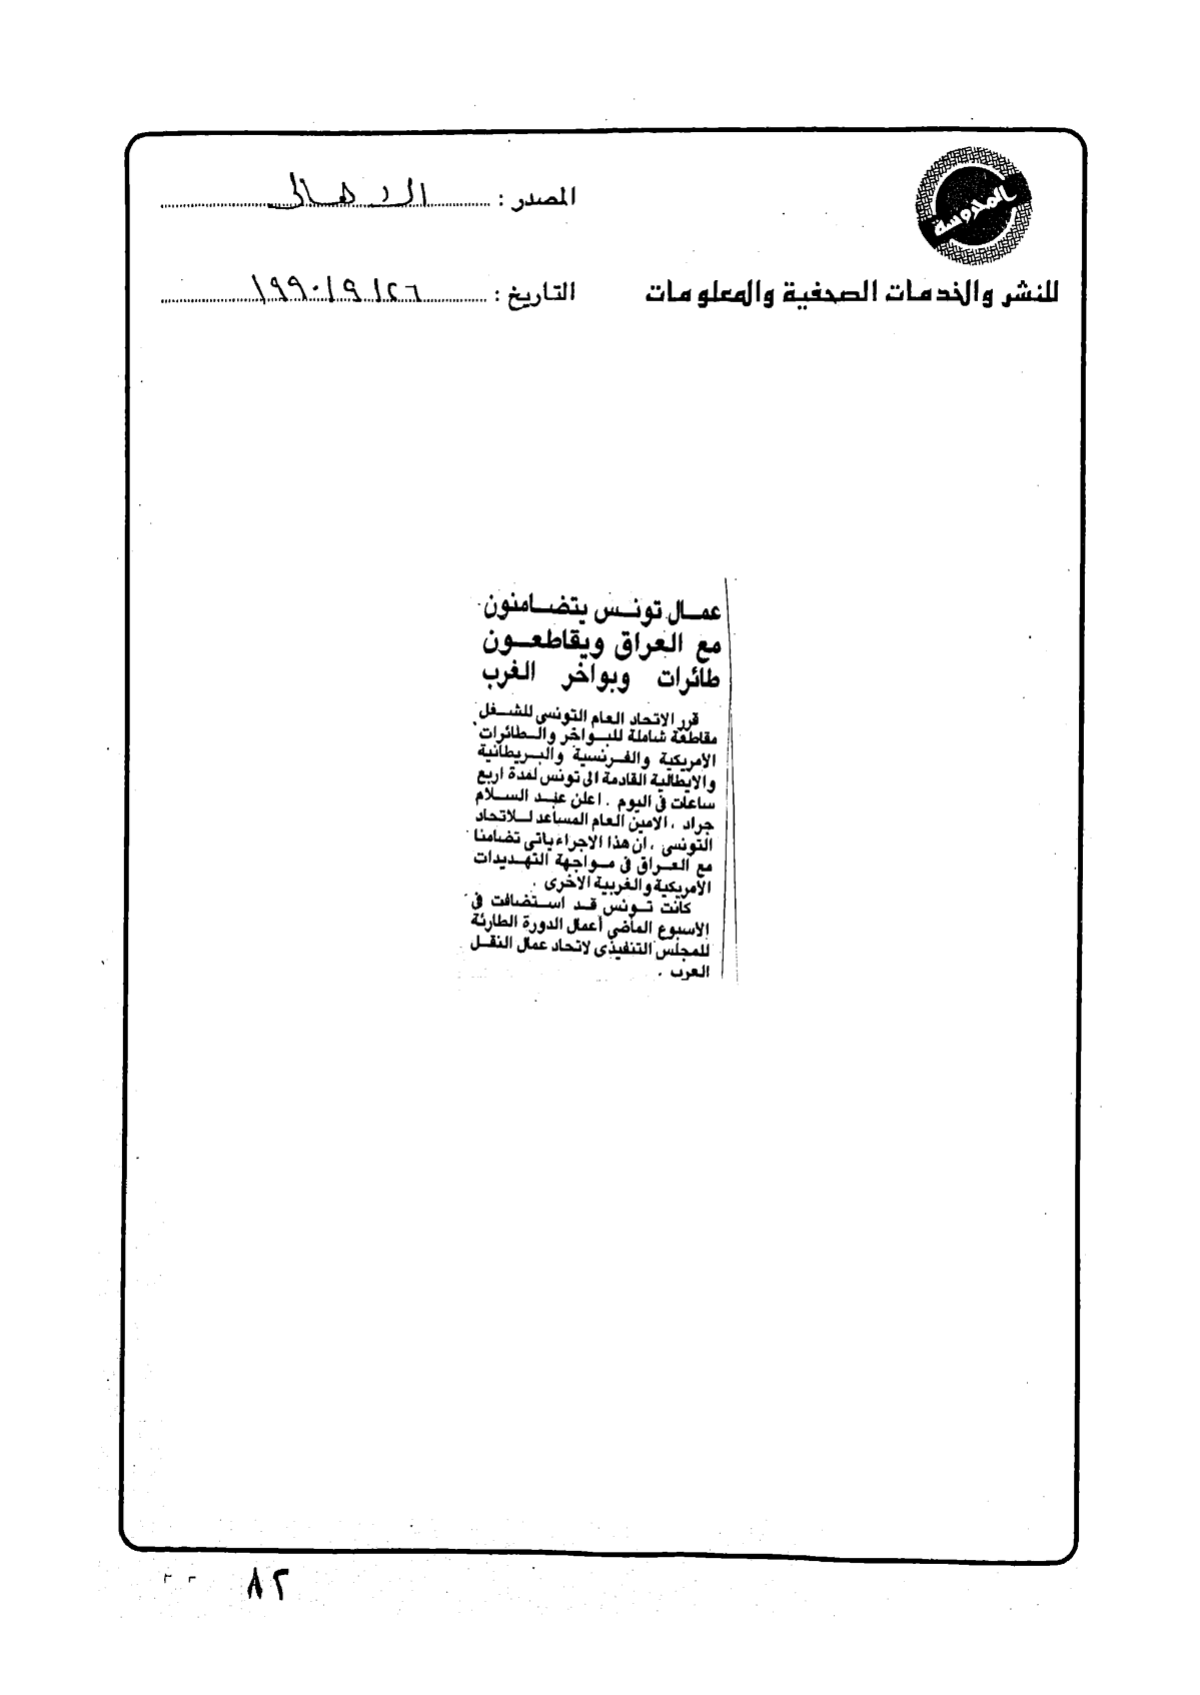 المحروسة
المصدر : الاهالى
للنشر والخدمات الصحفية والمعلومات
التاريخ : ٢٦ / ٩ / ١٩٩٠
عمال تونس يتضامنون
مع العراق ويقاطعون
طائرات وبواخر الغرب
قرر الاتحاد العام التونسى للشغل
مقاطعة شاملة للبواخر والطائرات
الامريكية والفرنسية والبريطانية
والايطالية القادمة الى تونس لمدة اربع
ساعات فى اليوم . اعلن عبد السلام
جراد ، الامين العام المساعد للاتحاد
التونسى ، ان هذا الاجراء ياتى تضامنا
مع العراق فى مواجهة التهديدات
الامريكية والغربية الاخرى .
كانت تونس قد استضافت فى
الاسبوع الماضى أعمال الدورة الطارئة
للمجلس التنفيذى لاتحاد عمال النقل
العرب .
٨٢